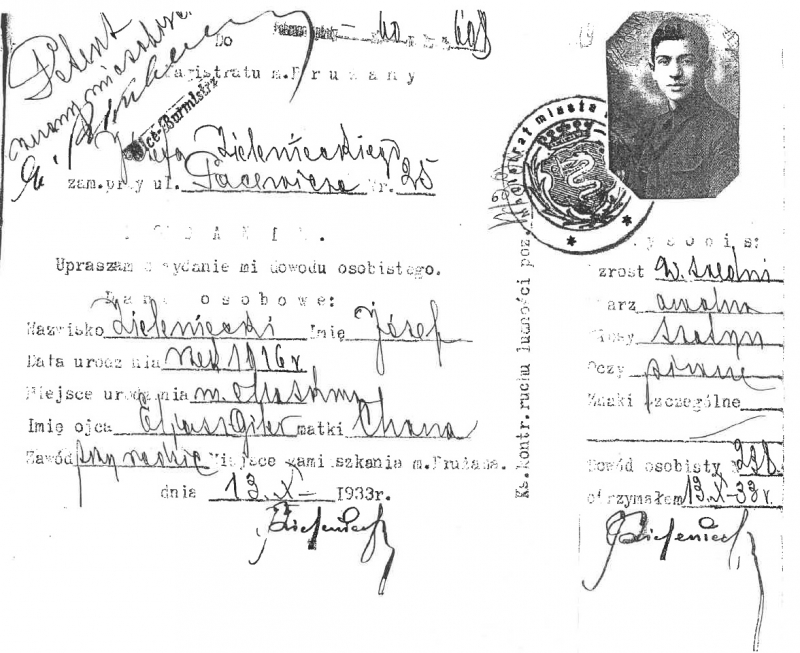 Petent
Do
Magistratu m.Prużany
Vice-Burmistrz
Józefa Zielenieckiego
zam.przy ul. Pacewicza Nr. 25
PODANIE.
Upraszam o wydanie mi dowodu osobistego.
Dane osobowe:
Nazwisko Zieleniecki Imię Józef
Data urodzenia rok 1916 r
Miejsce urodzenia m.
Imię ojca matki Chana
Zawód przy rodzic Miejsce zamieszkania m.Prużana.
dnia 13.X- 1933r.
Zieleniecki
Ks.kontr.ruchu ludności poz.
Magistrat miasta
Rysopis:
Wzrost w. średni
Twarz owalna
Włosy szatyn
Oczy piwne
Znaki szczególne
Dowód osobisty N
otrzymałem 13.X-33 r.
Zieleniecki